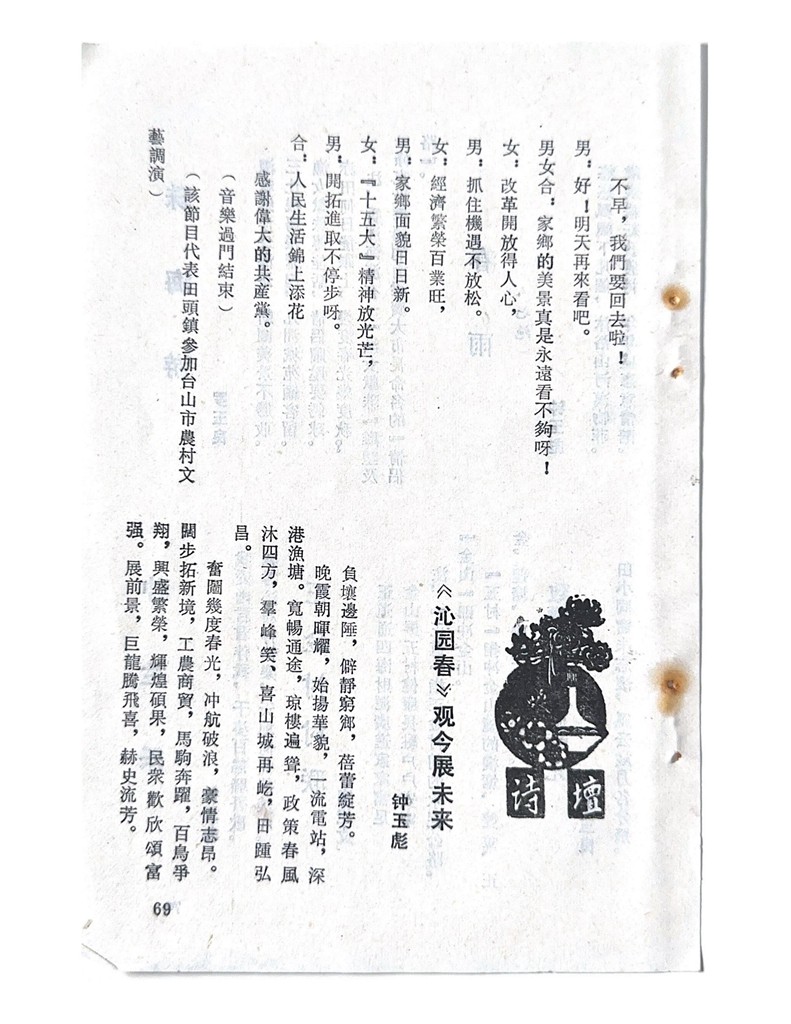 不早，我們要回去啦！
男：好！明天再來看吧。
男女合：家鄉的美景真是永遠看不夠呀！
女：改革開放得人心，
男：抓住機遇不放松。
女：經濟繁榮百業旺，
男：家鄉面貌日日新。
女：『十五大』精神放光芒，
男：開拓進取不停步呀。
合：人民生活錦上添花
感謝偉大的共産黨。
（音樂過門結束）
（該節目代表田頭鎮參加台山市農村文
藝調演）
诗壇
《沁园春》观今展未来
钟玉彪
負壤邊陲，僻靜窮鄉，蓓蕾綻芳。
晚霞朝暉耀，始揚華貌，一流電站，深
港漁塘。寬暢通途，琼樓遍聳，政策春風
沐四方，羣峰笑、喜山城再屹，田踵弘
昌。
奮圖幾度春光，冲航破浪，豪情志昂。
闊步拓新境，工農商貿，馬駒奔躍，百鳥爭
翔，興盛繁榮，輝煌碩果，民衆歡欣頌富
强。展前景，巨龍騰飛喜，赫史流芳。
69